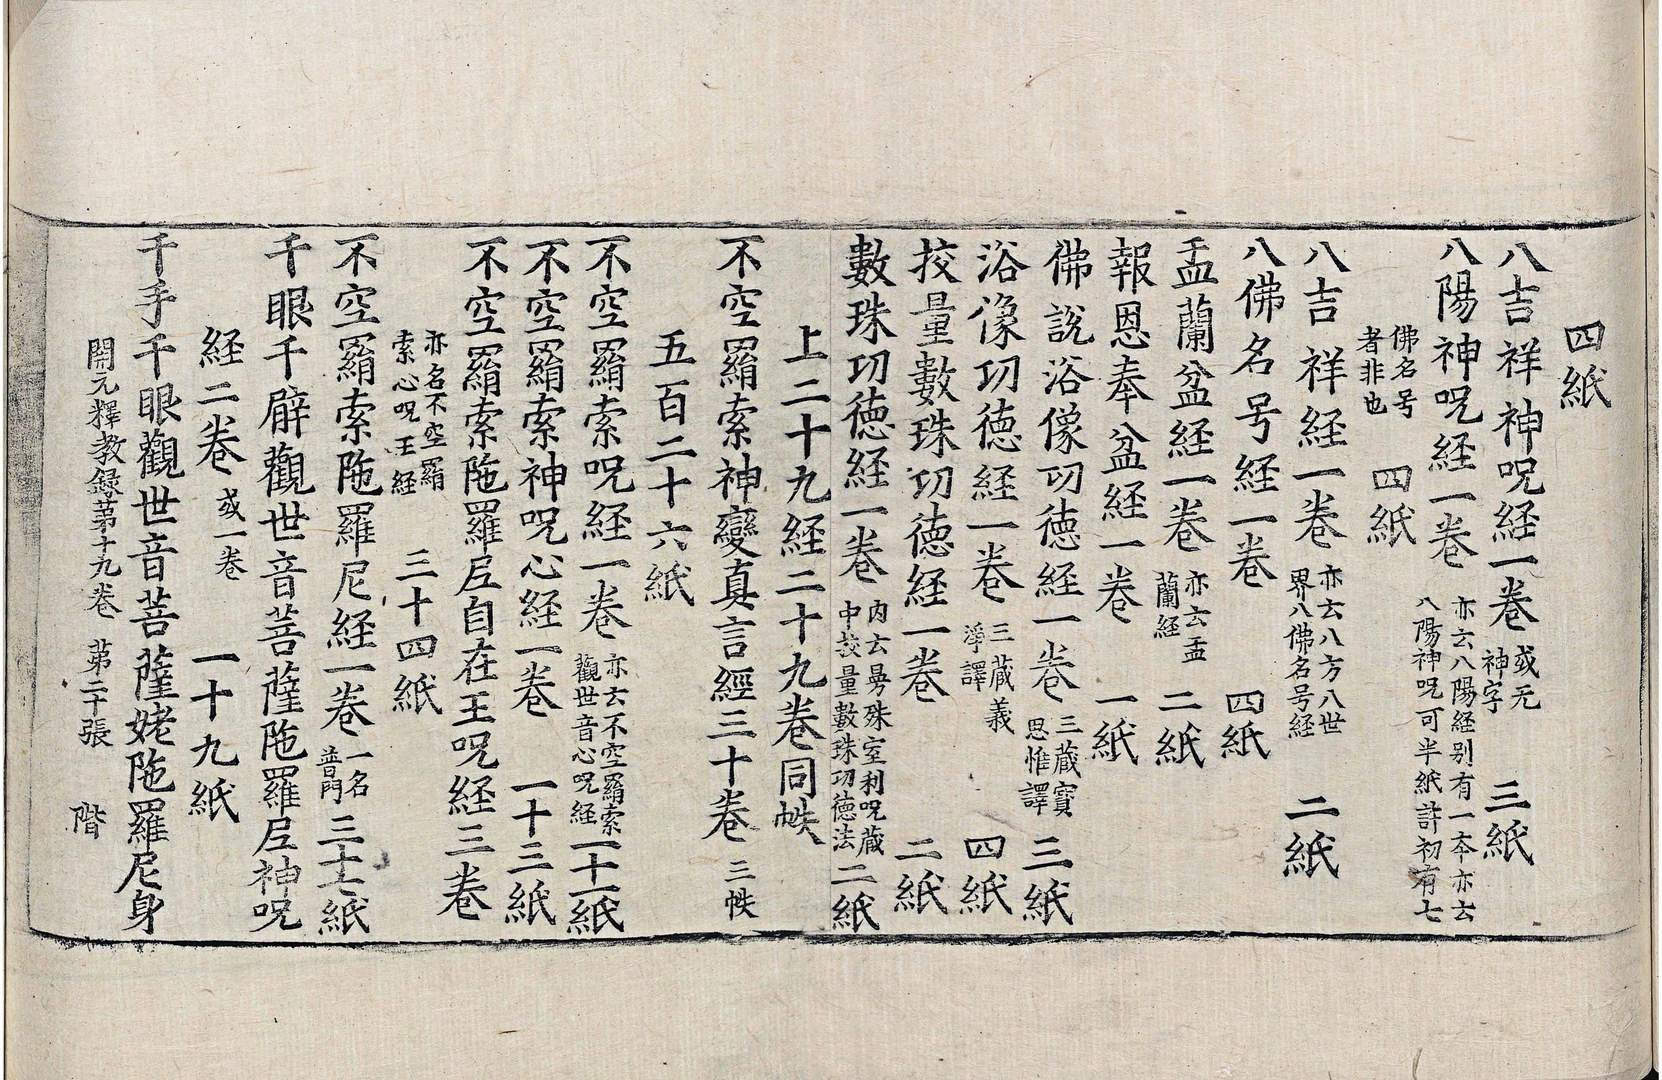 四紙
八吉祥神呪経一卷 或无神字 三紙
八陽神呪経一卷 亦云八陽経别有一夲亦云八陽神呪可半紙許初有七
佛名号者非也 四紙
八吉祥経一卷 亦云八方八世界八佛名号経 二紙
八佛名号経一卷 四紙
盂蘭盆経一卷 亦云盂蘭経 二紙
報恩奉盆経一卷 一紙
佛說浴像功徳経一卷 三蔵寶思惟譯 三紙
浴像功徳経一卷 三蔵義淨譯 四紙
挍量數珠功徳経一卷 二紙
數珠功徳経一卷 内云曼殊室利呪蔵中挍量數珠功徳法 二紙
上二十九経二十九卷同帙
不空羂索神變真言經三十卷 三帙
五百二十六紙
不空羂索呪経一卷 亦云不空羂索觀世音心呪経 一十一紙
不空羂索神呪心経一卷 一十三紙
不空羂索陁羅尼自在王呪経三卷
亦名不空羂索心呪王経 三十四紙
不空羂索陁羅尼経一卷 一名普門 三十七紙
千眼千臂觀世音菩薩陁羅尼神呪
経二卷 或一卷 一十九紙
千手千眼觀世音菩薩姥陁羅尼身
開元釋教録苐十九卷 苐二十張 階